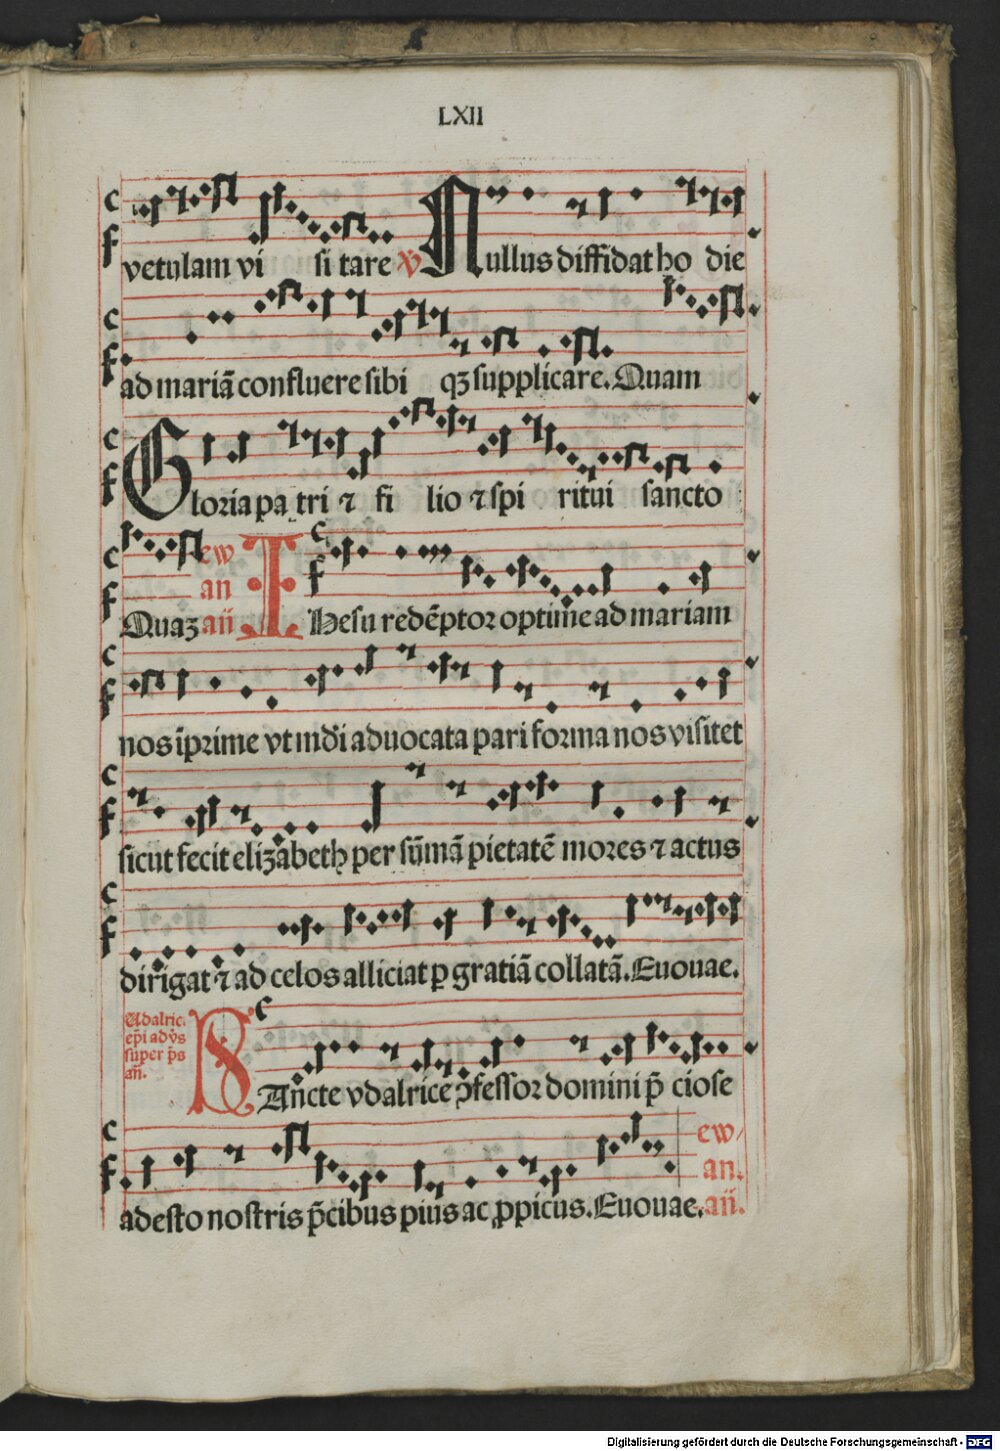 LXII
vetulam vi si tare v̊ Nullus diffidat ho die
ad mariā confluere sibi qꝫ supplicare. Quam
Gloria pa tri ⁊ fi lio ⁊ spi ritui sancto
Quaꝫ ew an an̄ IHesu redēptor optime ad mariam
nos īprime vt mdi aduocata pari forma nos visitet
sicut fecit elizabeth per sūmā pietatē mores ⁊ actus
dirigat ⁊ ad celos alliciat ꝑ gratiā collatā. Euouae.
Udalric.
ep̄i ad v̄s
super p̄s
an̄.
SAncte vdalrice ꝯfessor domini p̄ ciose
adesto nostris p̄cibus pius ac ꝓpicus. Euouae. ew an. an̄.
Digitalisierung gefördert durch die Deutsche Forschungsgemeinschaft - DFG